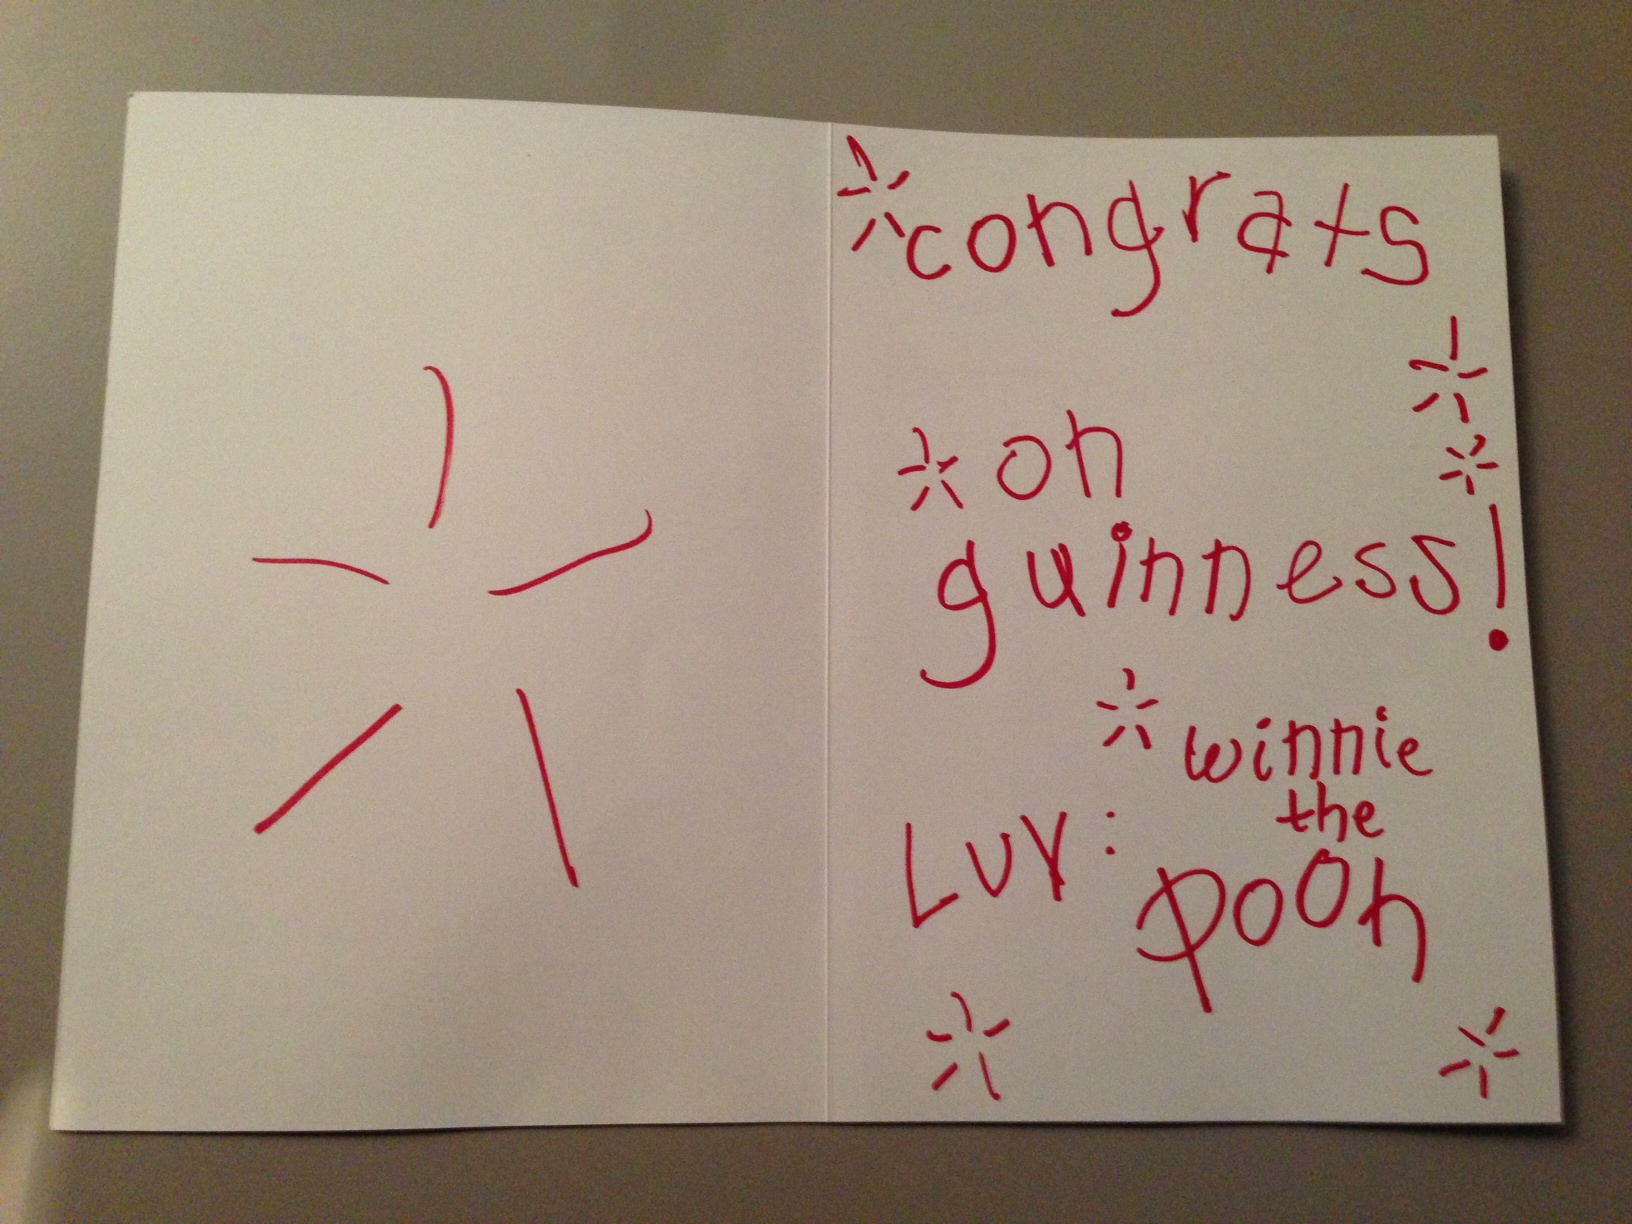 congrats
on
guinness!
winnie
the
Luv: pooh